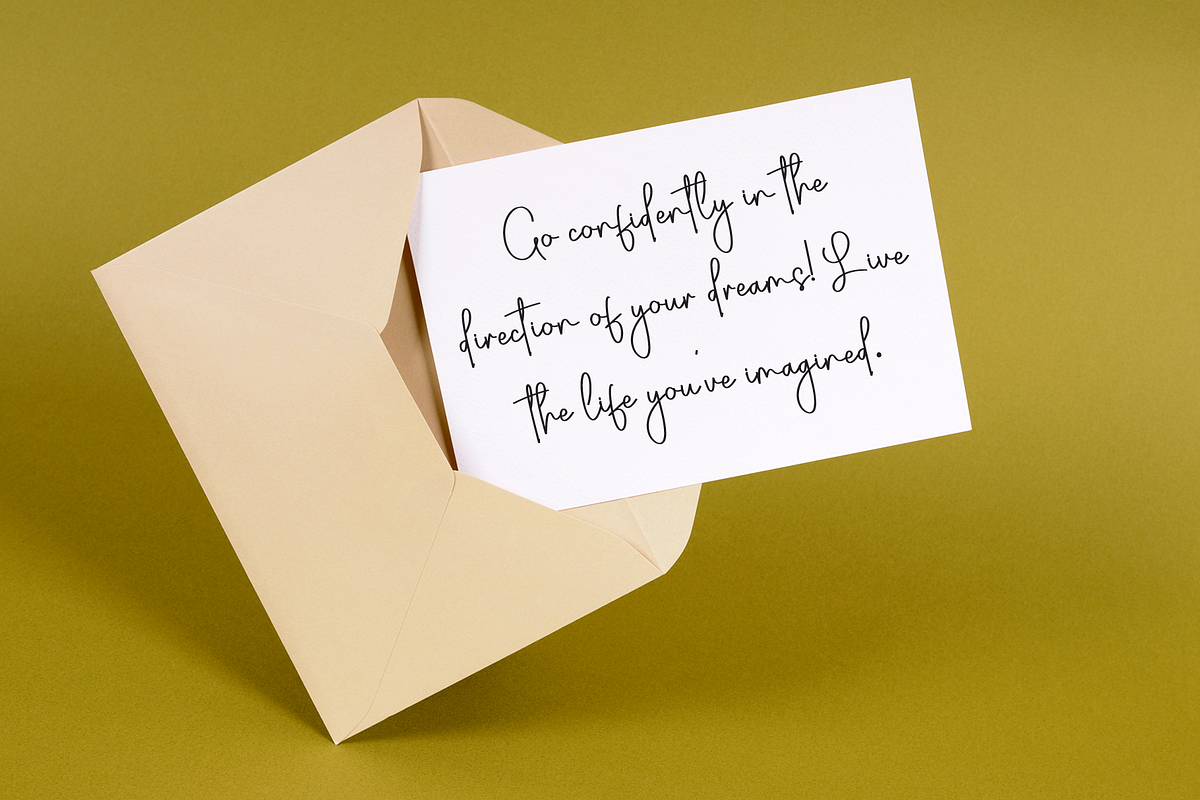 Go confidently in the
direction of your dreams! Live
the life you've imagined.